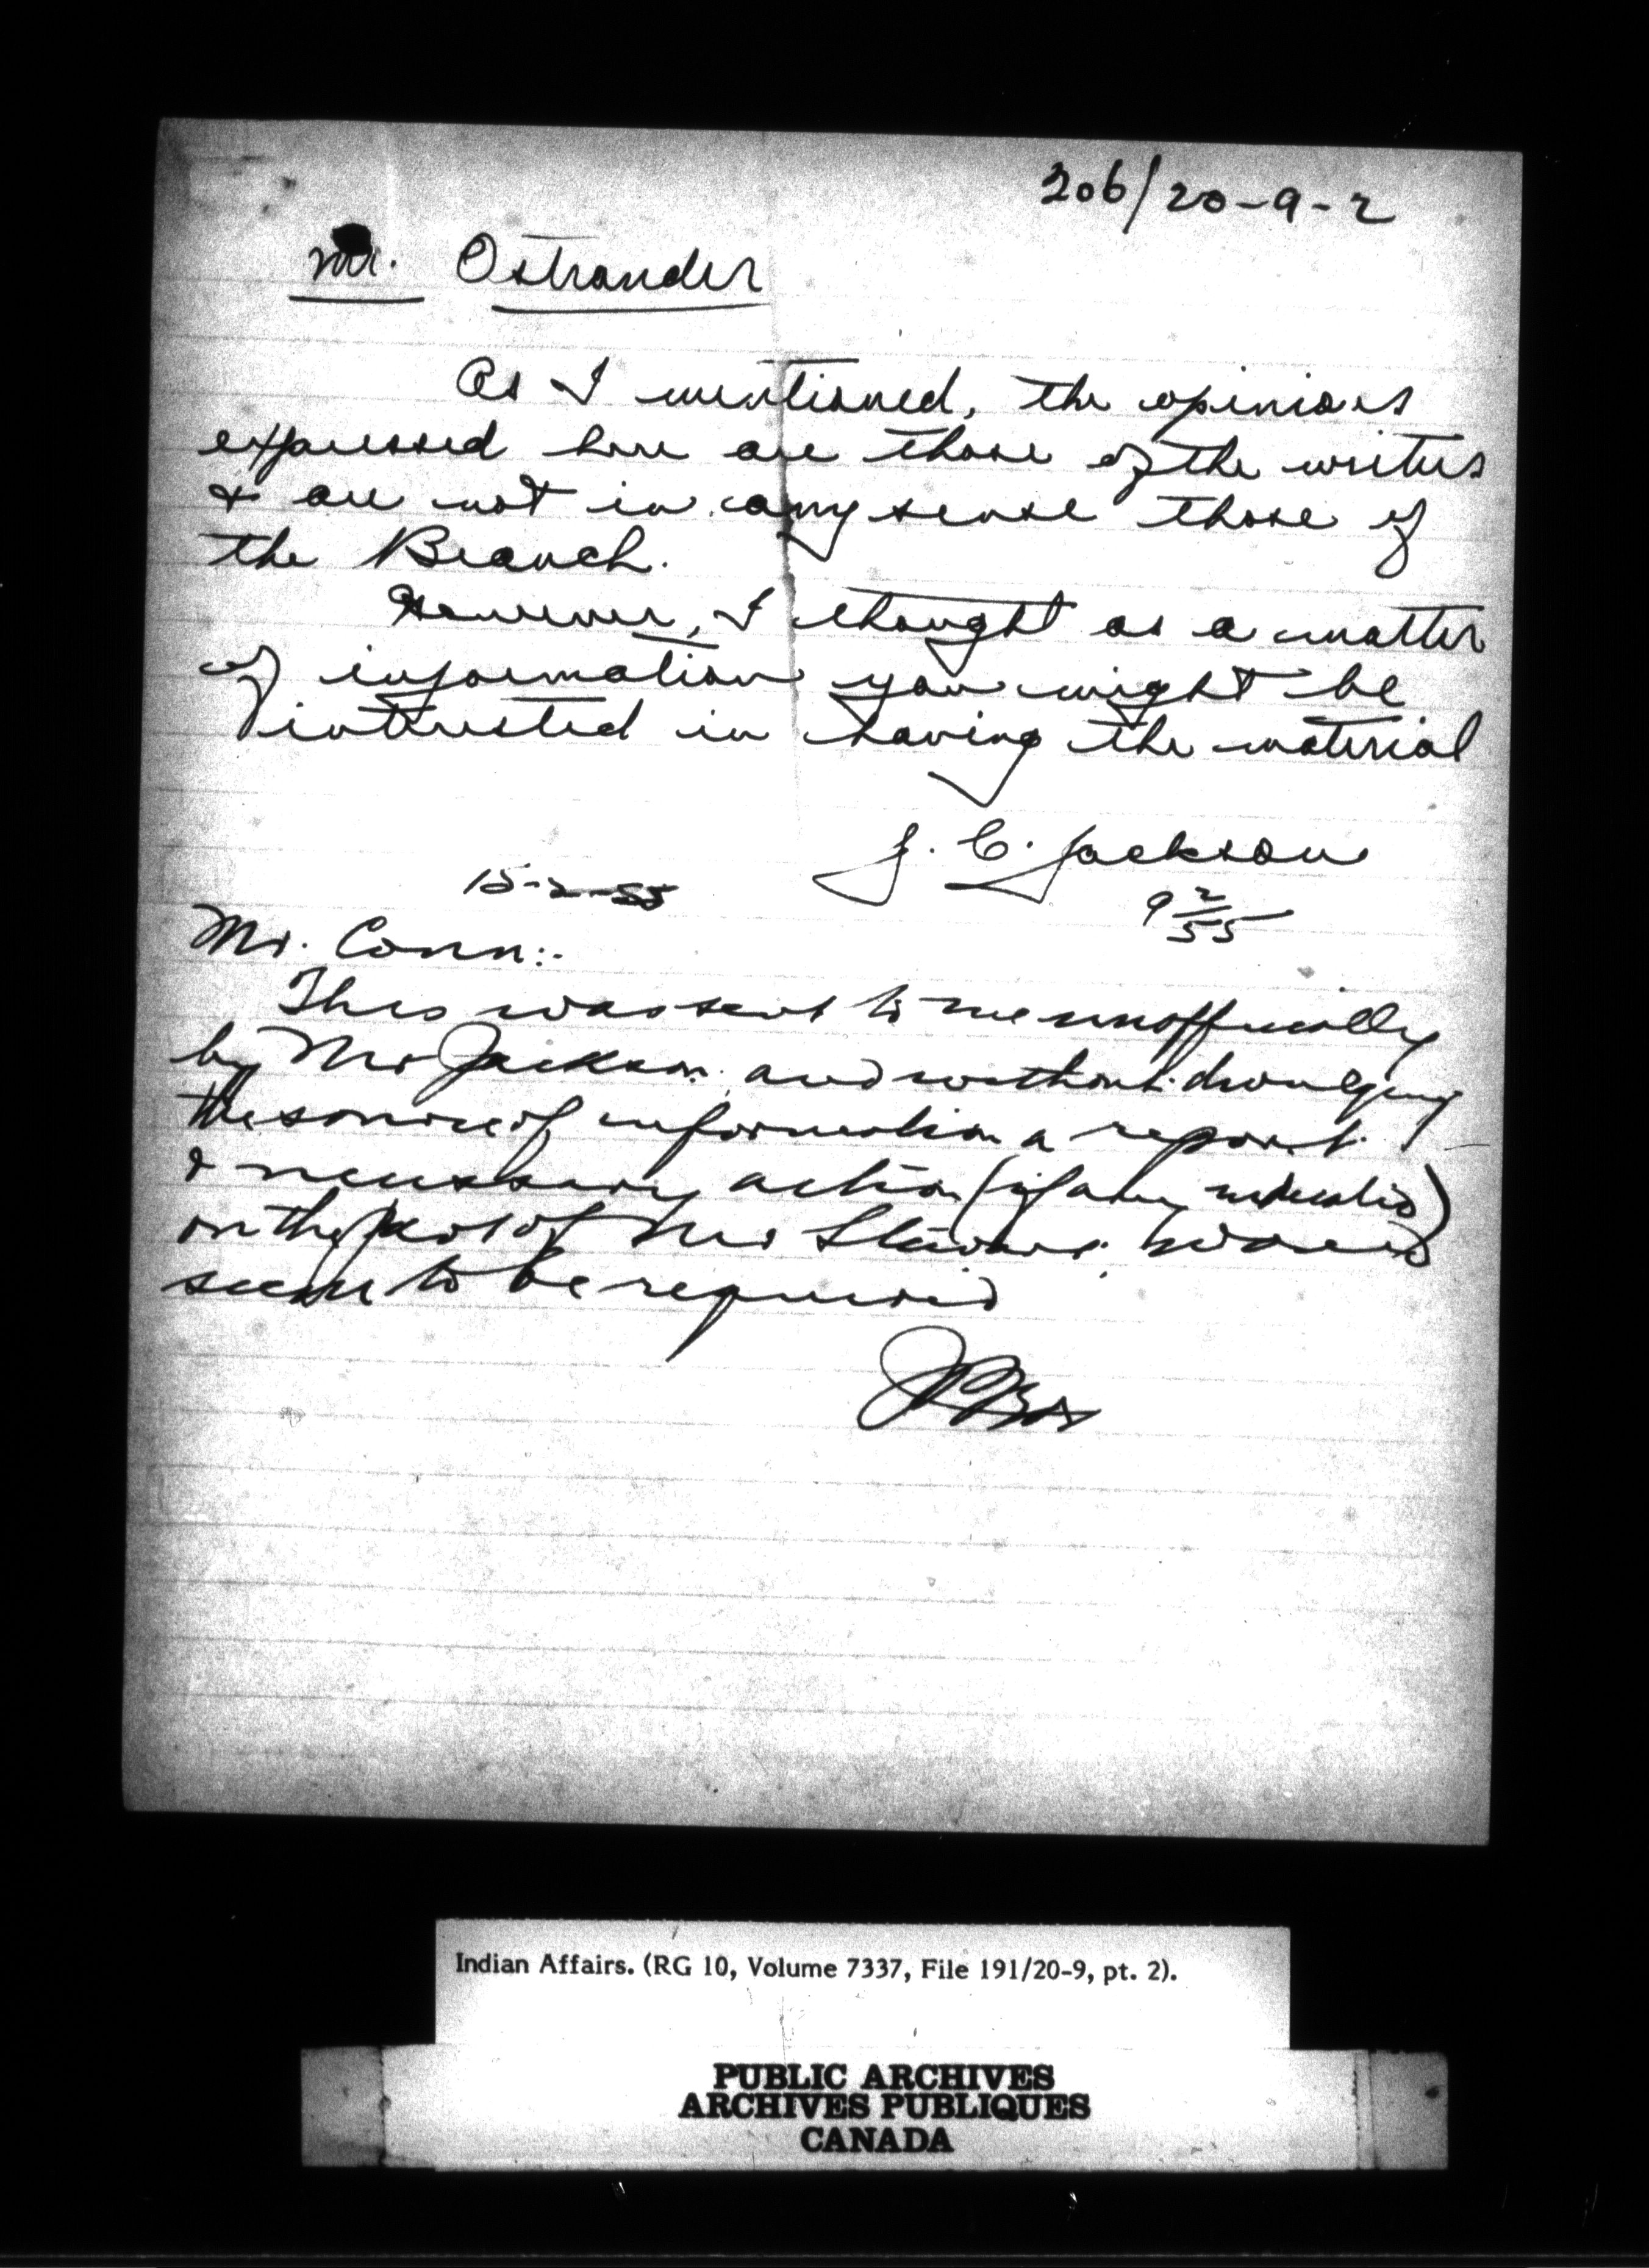 206/20-9-2
Mr. Ostrander
As I mentioned, the opinions
expressed here are those of the writers
& are not in any sense those of
the Branch.
However, I thought as a matter
of information you might be
intrusted in having the material
J. C. Jackson
9 2/55
15-2-55
Mr. Conn:-
This was sent to me unofficially
by Mr Jackson and without divulging
the source of information a report
& necessary action (if any indicated)
on the part of Mr would
seem to be required
Indian Affairs. (RG 10, Volume 7337, File 191/20-9, pt. 2).
PUBLIC ARCHIVES
ARCHIVES PUBLIQUES
CANADA